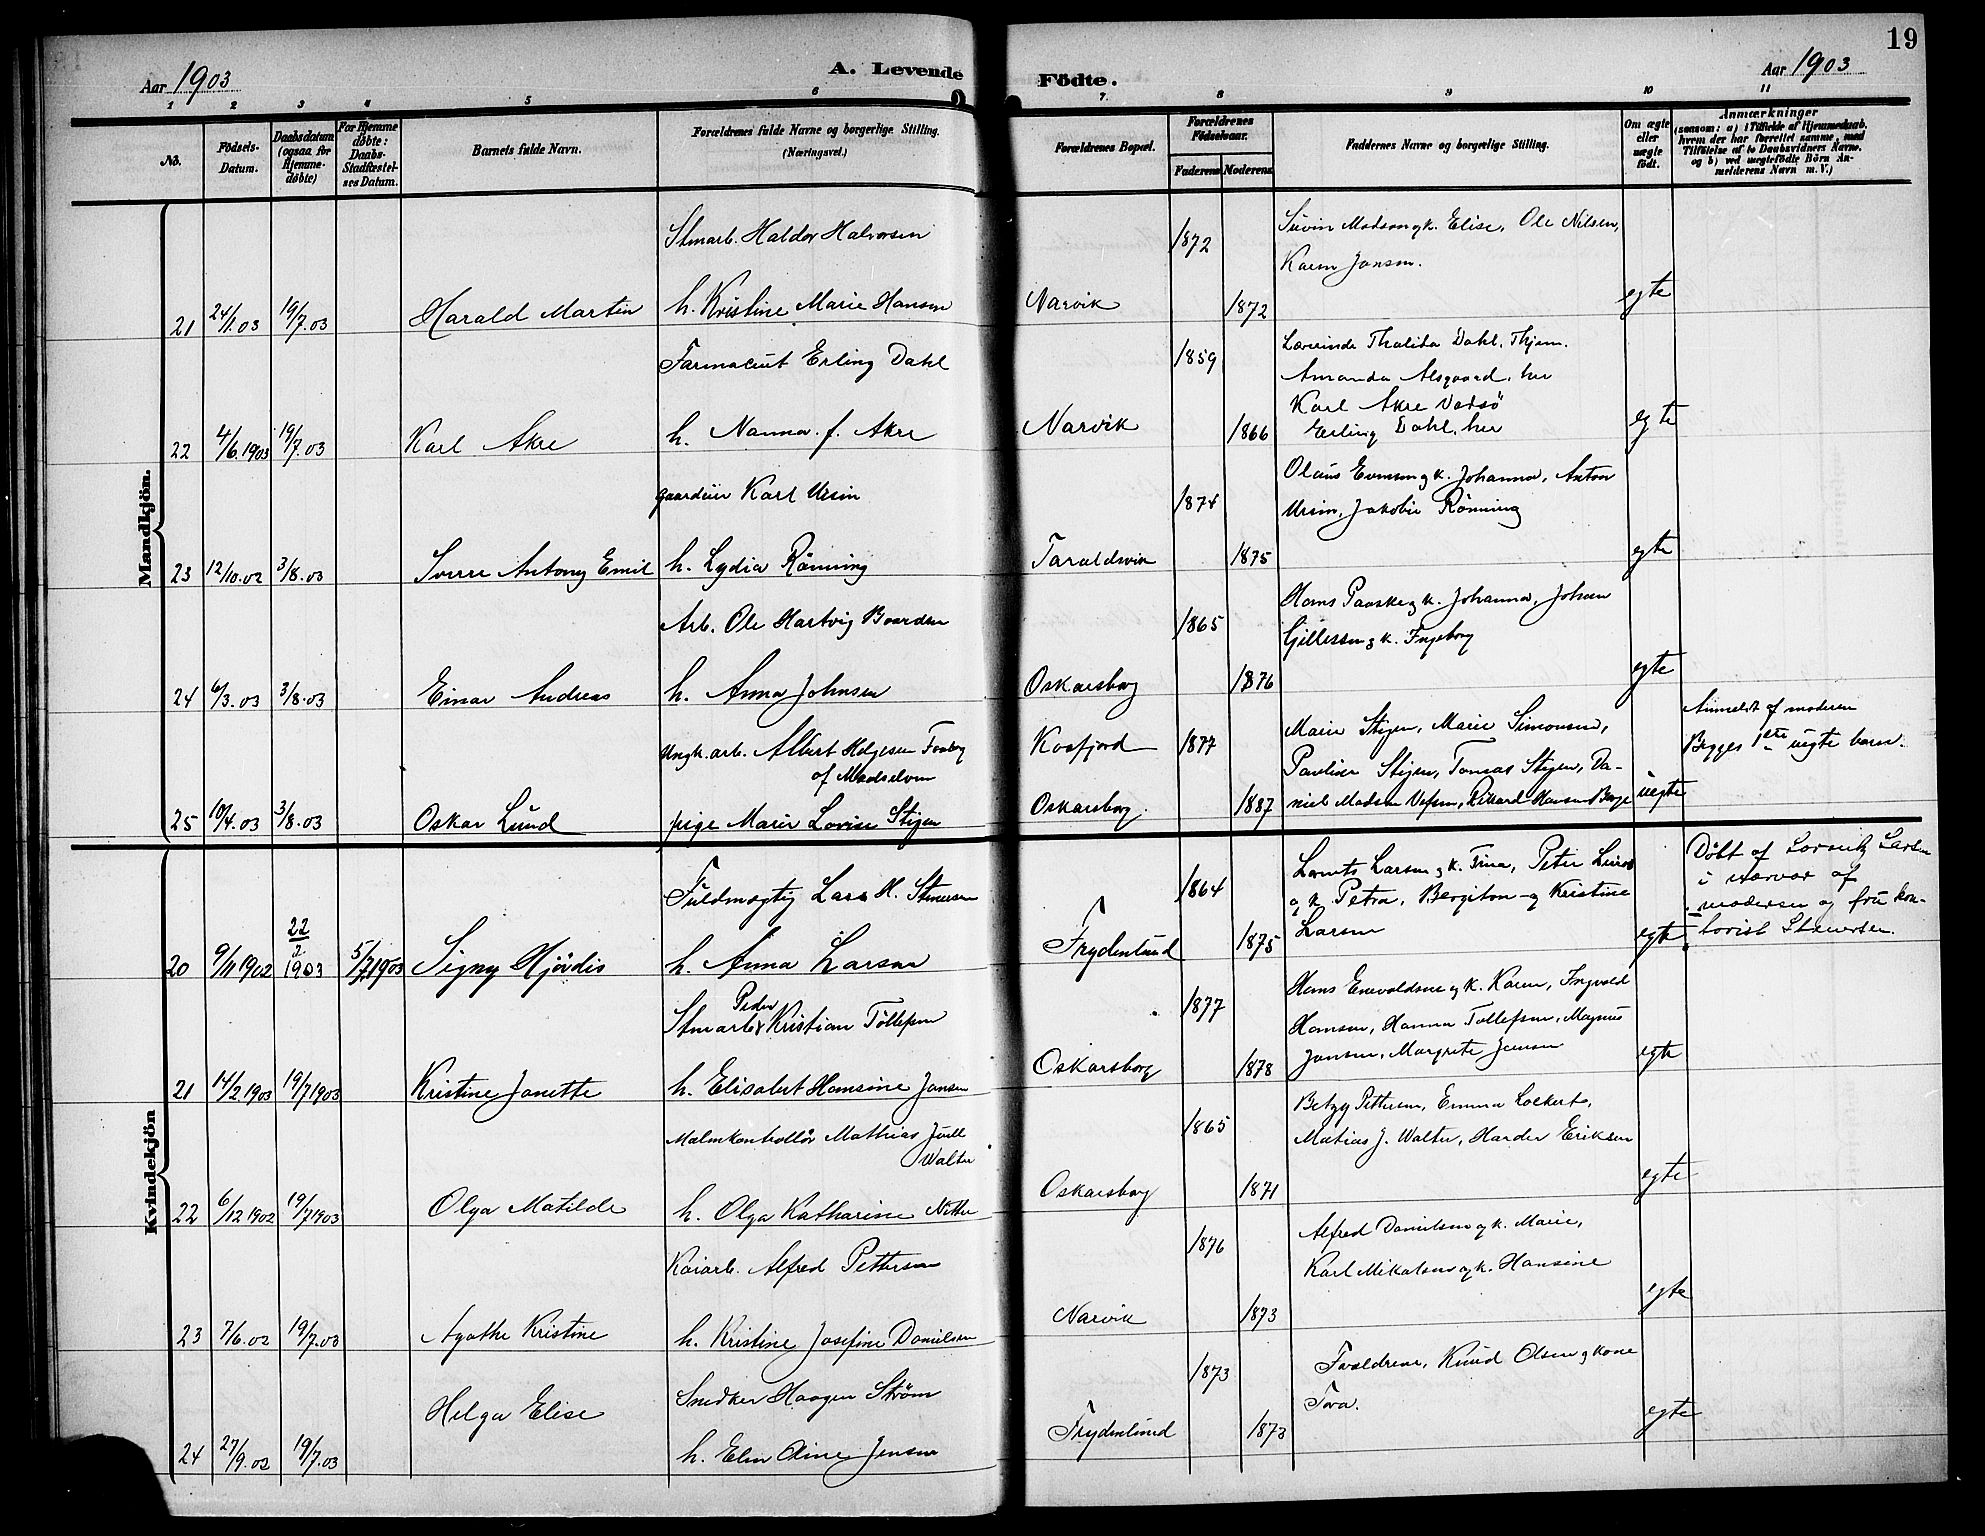 19
Aar 1903
A. Levende Födte.
Aar 1903
1 2 3 4 5 6 7. 8 9 10 11
No.
Födsels-
Datum.
Daabsdatum
(ogsaa for
Hjemme-
döbte)
For Hjemme
döbte:
Daabs-
Stadfæstel-
ses Datum.
Barnets fulde Navn.
Forældrenes fulde Navne og borgerlige Stilling.
(Næringsvei.)
Forældrenes Bopæl.
Forældrenes
Födselsaar.
Faderens Moderens
Faddernes Navne og borgerlige Stilling.
Om ægte
eller
uægte
födt.
Anmærkninger
(saasom: a) i Tilfælde af Hjemmedaab,
hvem der har forrettet samme, med
Tilföielse af to Daabsvidners Navne.
og b) ved uægtefödte Börn An-
melderens Navn m. V.)
Mandkjön.
Stmarb. Haldor Halvorsen 1872 Madsen og k. Elise, Ole Nilsen,
Karen Jansen.
21 24/1.03 19/7.03 Harald Martin h. Kristine Marie Hansen Narvik 1872 egte
Farmaceut Erling Dahl 1859 Lærerinde Thalita Dahl, Thjem.
Amanda Alsgaard, her
Karl Akre Vadsö
22 4/6.1903 19/7.03 Karl Akre h. Nanna f. Akre Narvik 1866 Erling Dahl, her egte
gaardeier Karl Ursin 1874 Olaus Evensen og k. Johanna, Anton
Ursin, Jakobie Rønning
23 12/10.02 3/8.03 Sverre Antony Emil h. Lydia Rønning Taraldsvik 1875 egte
Arb. Ole Hartvig Baardsen 1865 Hans Paaske og k. Johanna, Johan
Gillesen og k. Ingeborg
24 6/3.03 3/8.03 Einar Andreas h. Anna Johnsen Oskarsborg 1876 egte
Ungk. arb. Albert Helgesen Fosberg Kvafjord 1877 Marie Stigen, Marie Simonsen, Anmeldt af moderen
af Maalselven Pauline Stigen, Tomas Stigen, Da- Begges 1ste uegte barn.
25 10/4.03 3/8.03 Oskar Lund pige Marie Lovise Stigen Oskarsborg. 1887 niel Madsen Vefsn, Rikard Hansen uegte
Kvindekjön
Fuldmægtig Lars H. Stenersen 1864 Larsen og k. Trina, Peter Døbt af Larsen
og k. Petra, Bergiton og Kristine i nærvær af
Larsen moderen og fru kon-
20 9/11 1902 22/2 1903 5/7 1903 Signy Hjørdis h. Anna Larsen Frydenlund 1875 egte torist Stenersen.
Peder
Stmarb. Kristian Tollefsen 1877 Hans Enevoldsen og k. Karen, Ingvald
Hansen, Hanna Tollefsen, Magnus
Jansen, Margrete Jensen
21 14/2 1903 19/7 1903 Kristine Janette h. Elisabet Hansine Jansen Oskarsborg 1878 egte
Malmkontrollør Mathias Juell 1865 Betzy Pettersen, Emma Lockert,
Walter Matias J. Walter, Harder Eriksen
22 6/12 1902 19/7 1903 Olga Matilde h. Olga Katharine Oskarsborg 1871 egte
Kaiarb. Alfred Pettersen 1876 Alfred Danielsen og k. Marie,
Karl Mikalsen og k. Hansine
23 7/6.02 19/7.03 Agathe Kristine h. Kristine Josefine Danielsen Narvik 1873 egte
Snedker Haagen Strøm 1873 Forældrene, Knud Olsen og kone
Helga Elise Tora.
24 27/9.02 19/7.03 h. Elen Oline Jensen Frydenlund 1873 egte